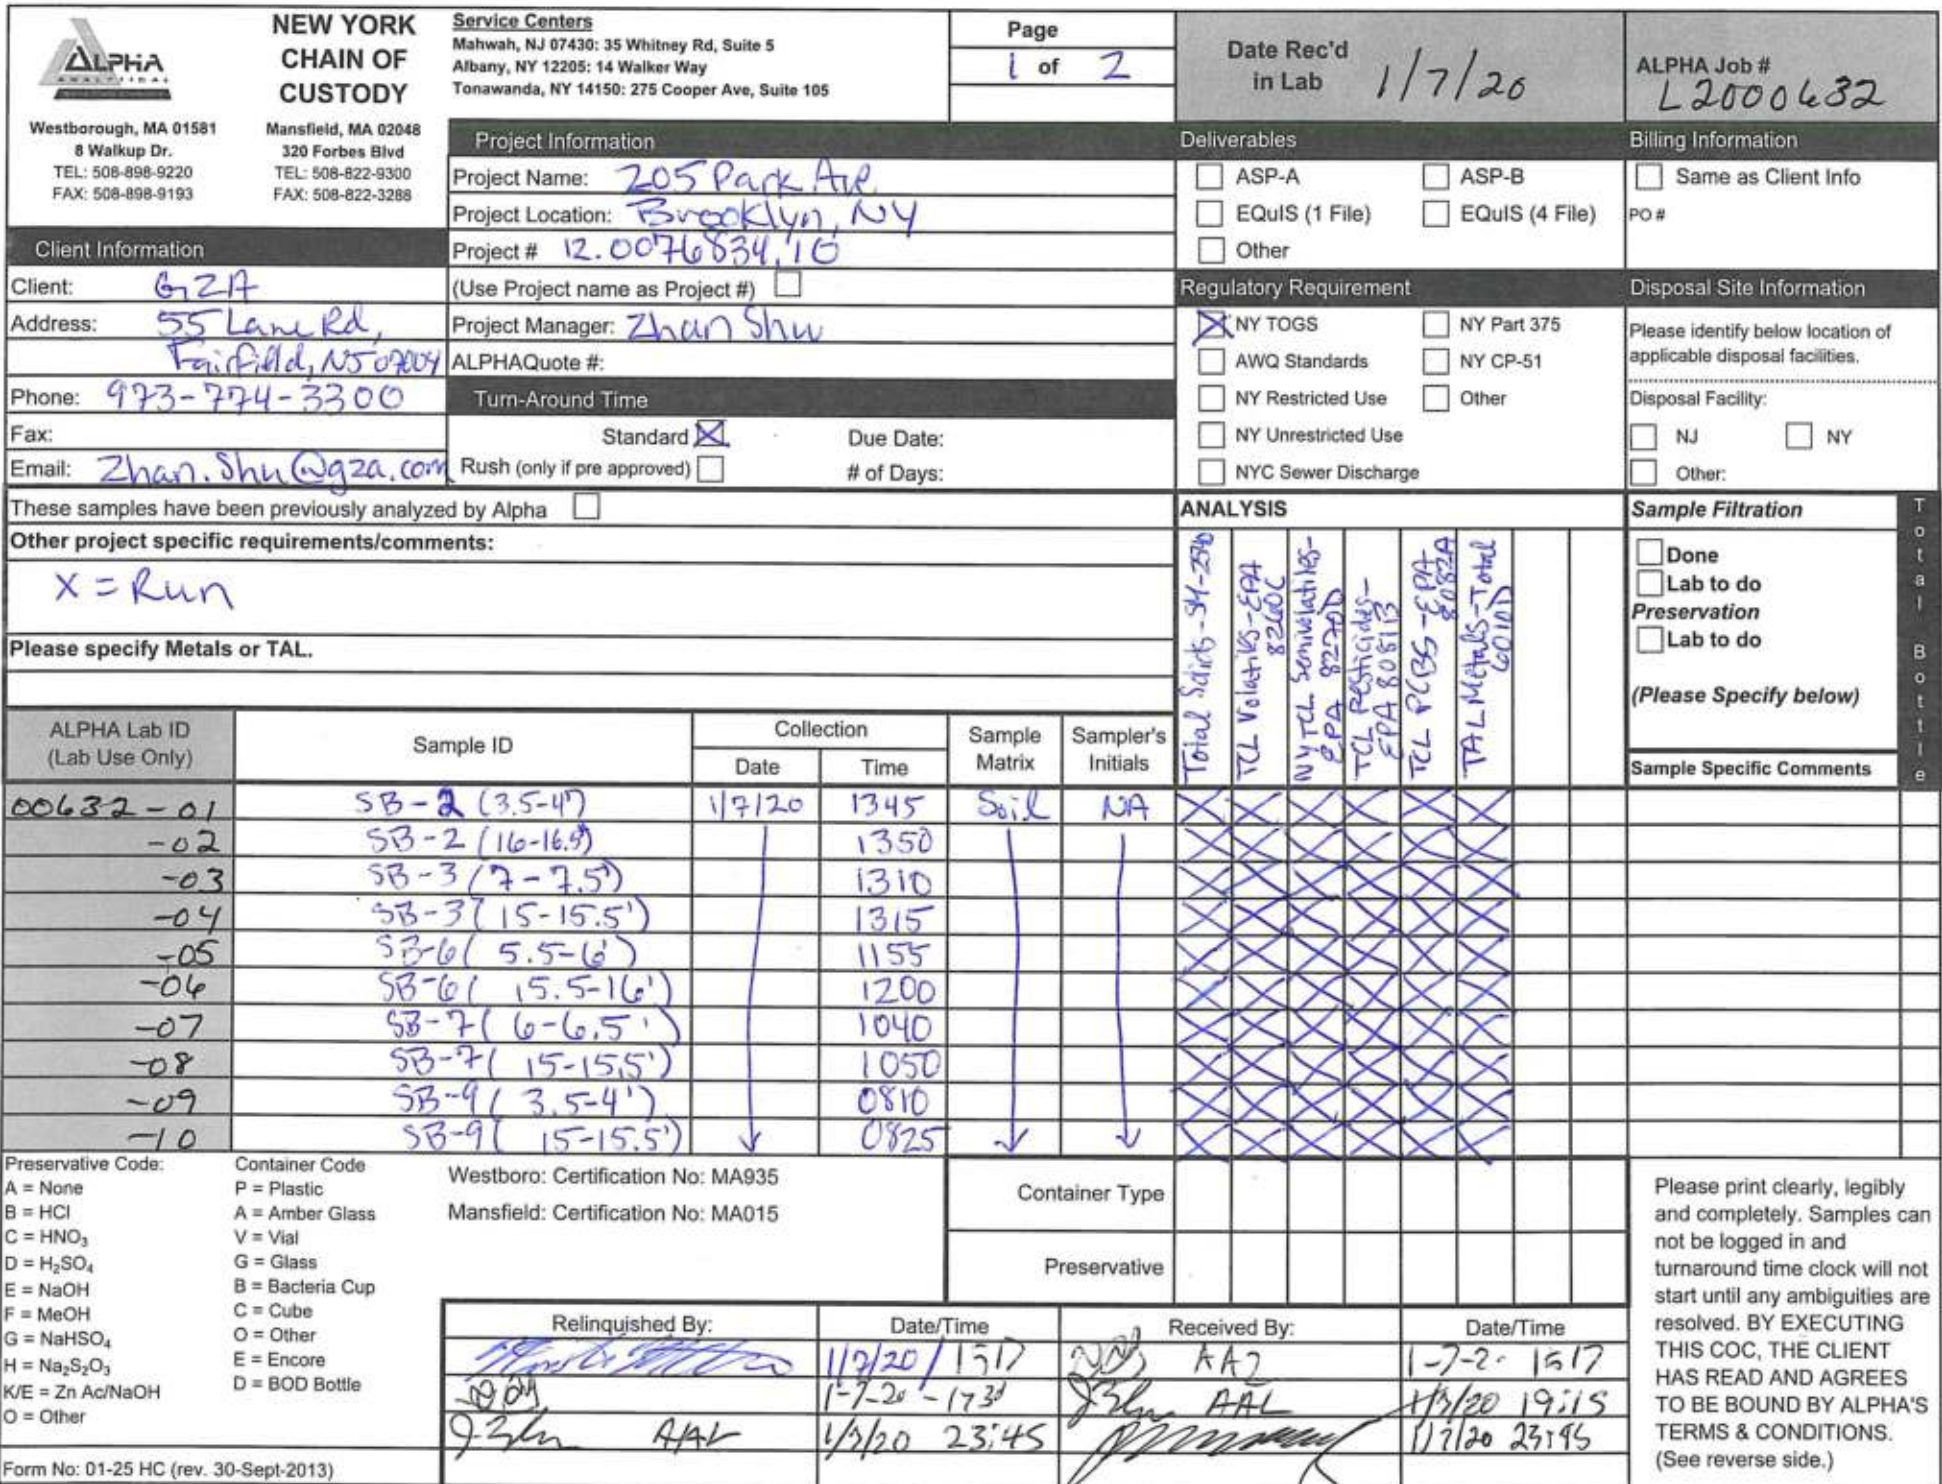 ALPHA
ANALYTICAL
Westborough, MA 01581
8 Walkup Dr.
TEL: 508-898-9220
FAX: 508-898-9193
NEW YORK
CHAIN OF
CUSTODY
Mansfield, MA 02048
320 Forbes Blvd
TEL: 508-822-9300
FAX: 508-822-3288
Service Centers
Mahwah, NJ 07430: 35 Whitney Rd, Suite 5
Albany, NY 12205: 14 Walker Way
Tonawanda, NY 14150: 275 Cooper Ave, Suite 105
Page
1 of 2
Date Rec'd
in Lab 1/7/20
ALPHA Job #
L2000632
Project Information
Project Name: 205 Park Ave
Project Location: Brooklyn, NY
Project # 12.0076834.10
(Use Project name as Project #)
Project Manager: Zhan Shu
ALPHAQuote #:
Deliverables
ASP-A ASP-B
EQuIS (1 File) EQuIS (4 File)
Other
Billing Information
Same as Client Info
PO #
Client Information
Client: GZA
Address: 55 Lane Rd,
Fairfield, NJ 07004
Phone: 973-774-3300
Fax:
Email: Zhan.Shu@gza.com
Turn-Around Time
Standard X Due Date:
Rush (only if pre approved) # of Days:
Regulatory Requirement
X NY TOGS NY Part 375
AWQ Standards NY CP-51
NY Restricted Use Other
NY Unrestricted Use
NYC Sewer Discharge
Disposal Site Information
Please identify below location of
applicable disposal facilities.
Disposal Facility:
NJ NY
Other:
These samples have been previously analyzed by Alpha
Other project specific requirements/comments:
X = Run
Please specify Metals or TAL.
ANALYSIS
Total Solids - SM-2540
TCL Volatiles - EPA
8260C
NYTCL Semivolatiles -
EPA 8270D
TCL Pesticides -
EPA 8081B
TCL PCBS - EPA
8082A
TAL Metals - Total
6010D
Sample Filtration
Done
Lab to do
Preservation
Lab to do
(Please Specify below)
Sample Specific Comments
Total Bottle
ALPHA Lab ID
(Lab Use Only)
Sample ID
Collection
Date Time
Sample
Matrix
Sampler's
Initials
00632-01 SB-2 (3.5-4') 1/7/20 1345 Soil NA X X X X X X
-02 SB-2 (16-16.5') 1350 X X X X X X
-03 SB-3 (7-7.5') 1310 X X X X X X
-04 SB-3 (15-15.5') 1315 X X X X X X
-05 SB-6 (5.5-6') 1155 X X X X X X
-06 SB-6 (15.5-16') 1200 X X X X X X
-07 SB-7 (6-6.5') 1040 X X X X X X
-08 SB-7 (15-15.5') 1050 X X X X X X
-09 SB-9 (3.5-4') 0810 X X X X X X
-10 SB-9 (15-15.5') 0825 X X X X X X
Preservative Code:
A = None
B = HCl
C = HNO3
D = H2SO4
E = NaOH
F = MeOH
G = NaHSO4
H = Na2S2O3
K/E = Zn Ac/NaOH
O = Other
Container Code
P = Plastic
A = Amber Glass
V = Vial
G = Glass
B = Bacteria Cup
C = Cube
O = Other
E = Encore
D = BOD Bottle
Westboro: Certification No: MA935
Mansfield: Certification No: MA015
Container Type
Preservative
Relinquished By: Date/Time Received By: Date/Time
1/7/20 / 1517 1-7-2 1517
1-7-20 AAL 19:15
AAL 23:45 1/7/20 23:45
Please print clearly, legibly
and completely. Samples can
not be logged in and
turnaround time clock will not
start until any ambiguities are
resolved. BY EXECUTING
THIS COC, THE CLIENT
HAS READ AND AGREES
TO BE BOUND BY ALPHA'S
TERMS & CONDITIONS.
(See reverse side.)
Form No: 01-25 HC (rev. 30-Sept-2013)